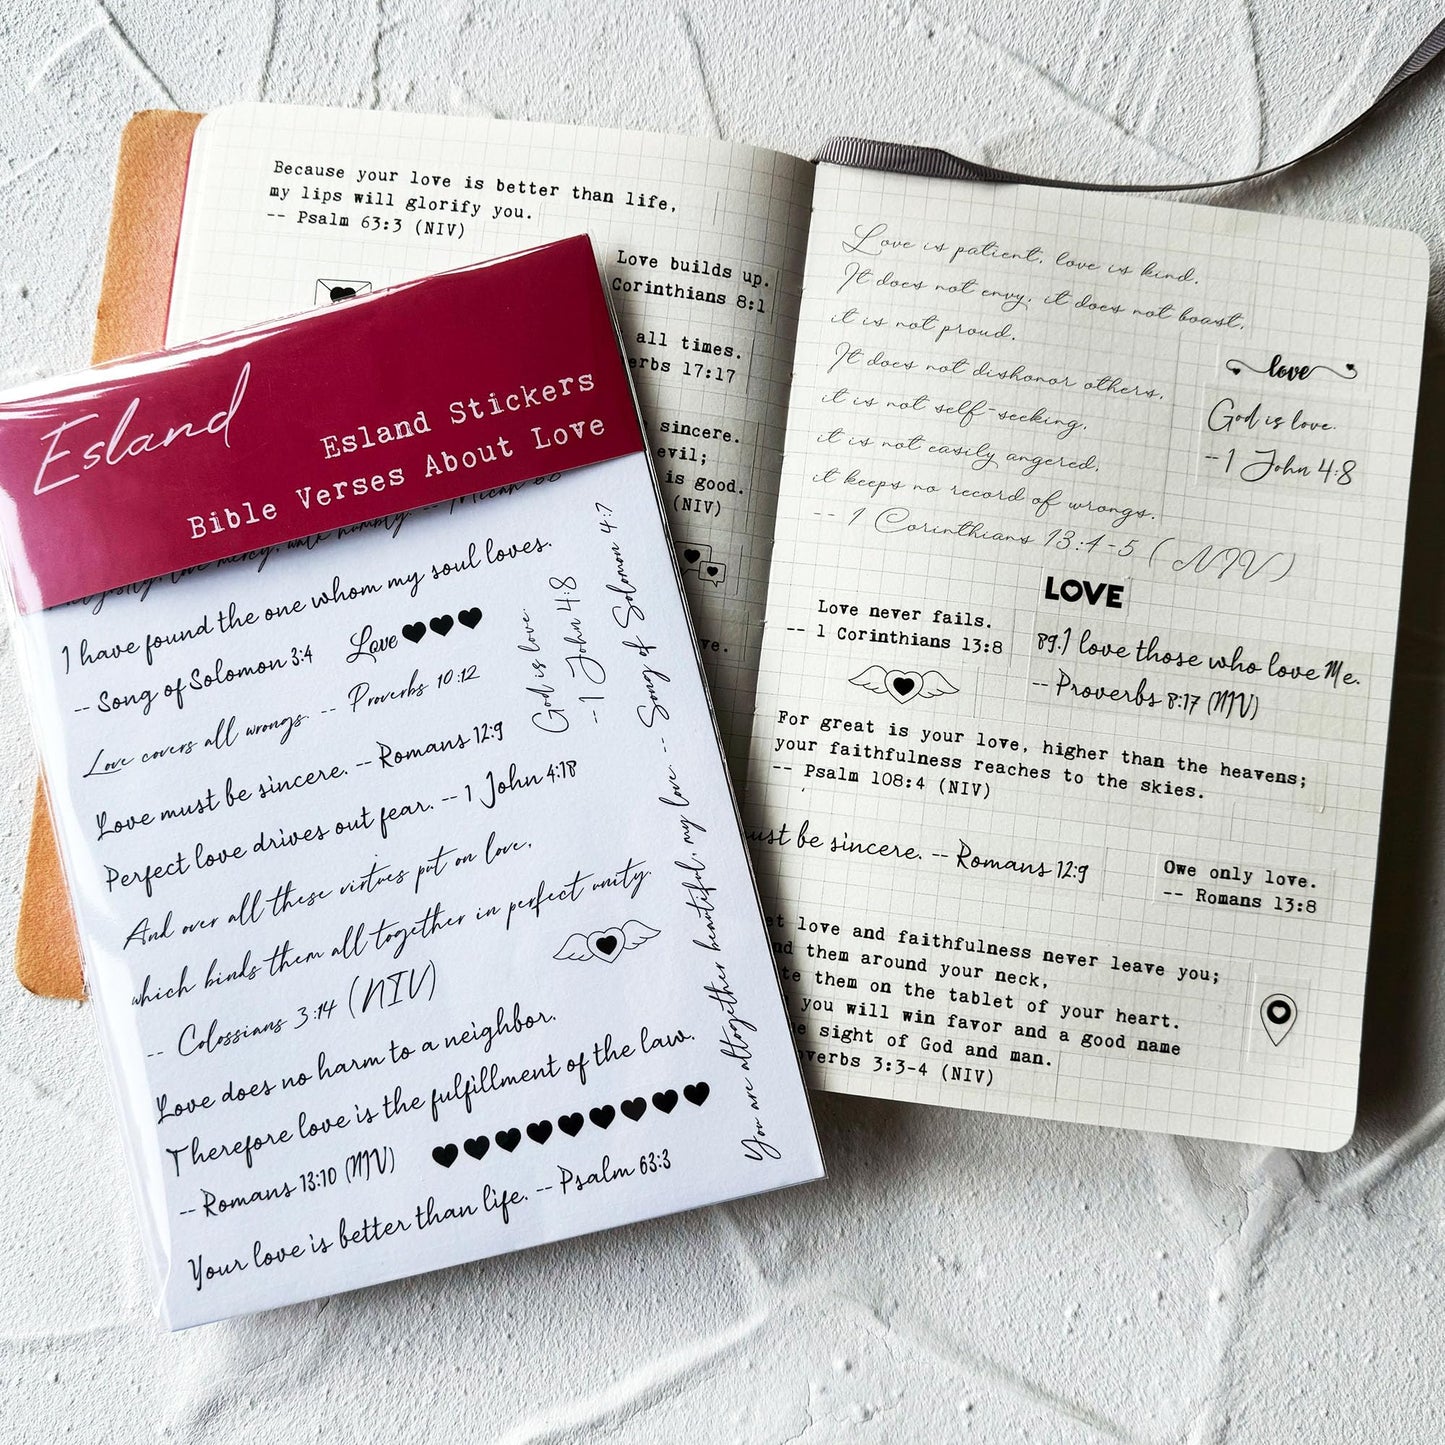 Because your love is better than life,
my lips will glorify you.
-- Psalm 63:3 (NIV)
Love builds up.
Corinthians 8:1
all times.
17:17
sincere.
evil;
is good.
(NIV)
Esland
Esland Stickers
Bible Verses About Love
I have found the one whom my soul loves.
-- Song of Solomon 3:4
Love
Love covers all wrongs. -- Proverbs 10:12
Love must be sincere. -- Romans 12:9
Perfect love drives out fear. -- 1 John 4:18
And over all these virtues put on love,
which binds them all together in perfect unity.
-- Colossians 3:14 (NIV)
Love does no harm to a neighbor.
Therefore love is the fulfillment of the law.
-- Romans 13:10 (NIV)
Your love is better than life. -- Psalm 63:3
God is love.
--1 John 4:8
You are altogether beautiful, my love. -- Song of Solomon 4:7
Love is patient, love is kind.
It does not envy, it does not boast,
it is not proud.
It does not dishonor others,
it is not self-seeking,
it is not easily angered,
it keeps no record of wrongs.
-- 1 Corinthians 13:4-5 (NIV)
love
God is love.
--1 John 4:8
LOVE
Love never fails.
-- 1 Corinthians 13:8
89.I love those who love Me.
-- Proverbs 8:17 (NIV)
For great is your love, higher than the heavens;
your faithfulness reaches to the skies.
-- Psalm 108:4 (NIV)
be sincere. -- Romans 12:9
Owe only love.
-- Romans 13:8
love and faithfulness never leave you;
them around your neck,
them on the tablet of your heart.
you will win favor and a good name
sight of God and man.
3:3-4 (NIV)